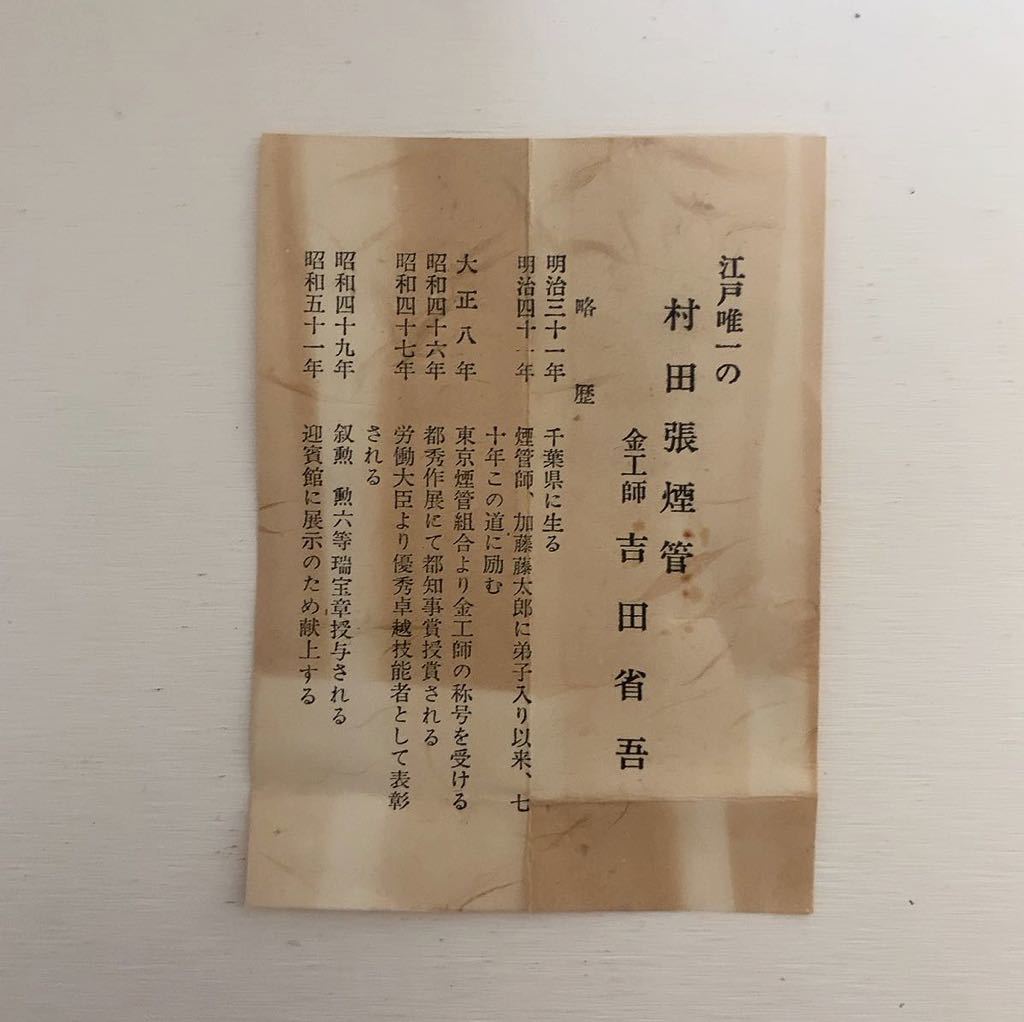 江戸唯一の
村田張煙管
金工師 吉田省吾
略歴
明治三十一年 千葉県に生る
明治四十一年 煙管師、加藤藤太郎に弟子入り以来、七
十年この道に励む
大正八年 東京煙管組合より金工師の称号を受ける
昭和四十六年 都秀作展にて都知事賞授賞される
昭和四十七年 労働大臣より優秀卓越技能者として表彰
される
昭和四十九年 叙勲 勲六等瑞宝章授与される
昭和五十一年 迎賓館に展示のため献上する